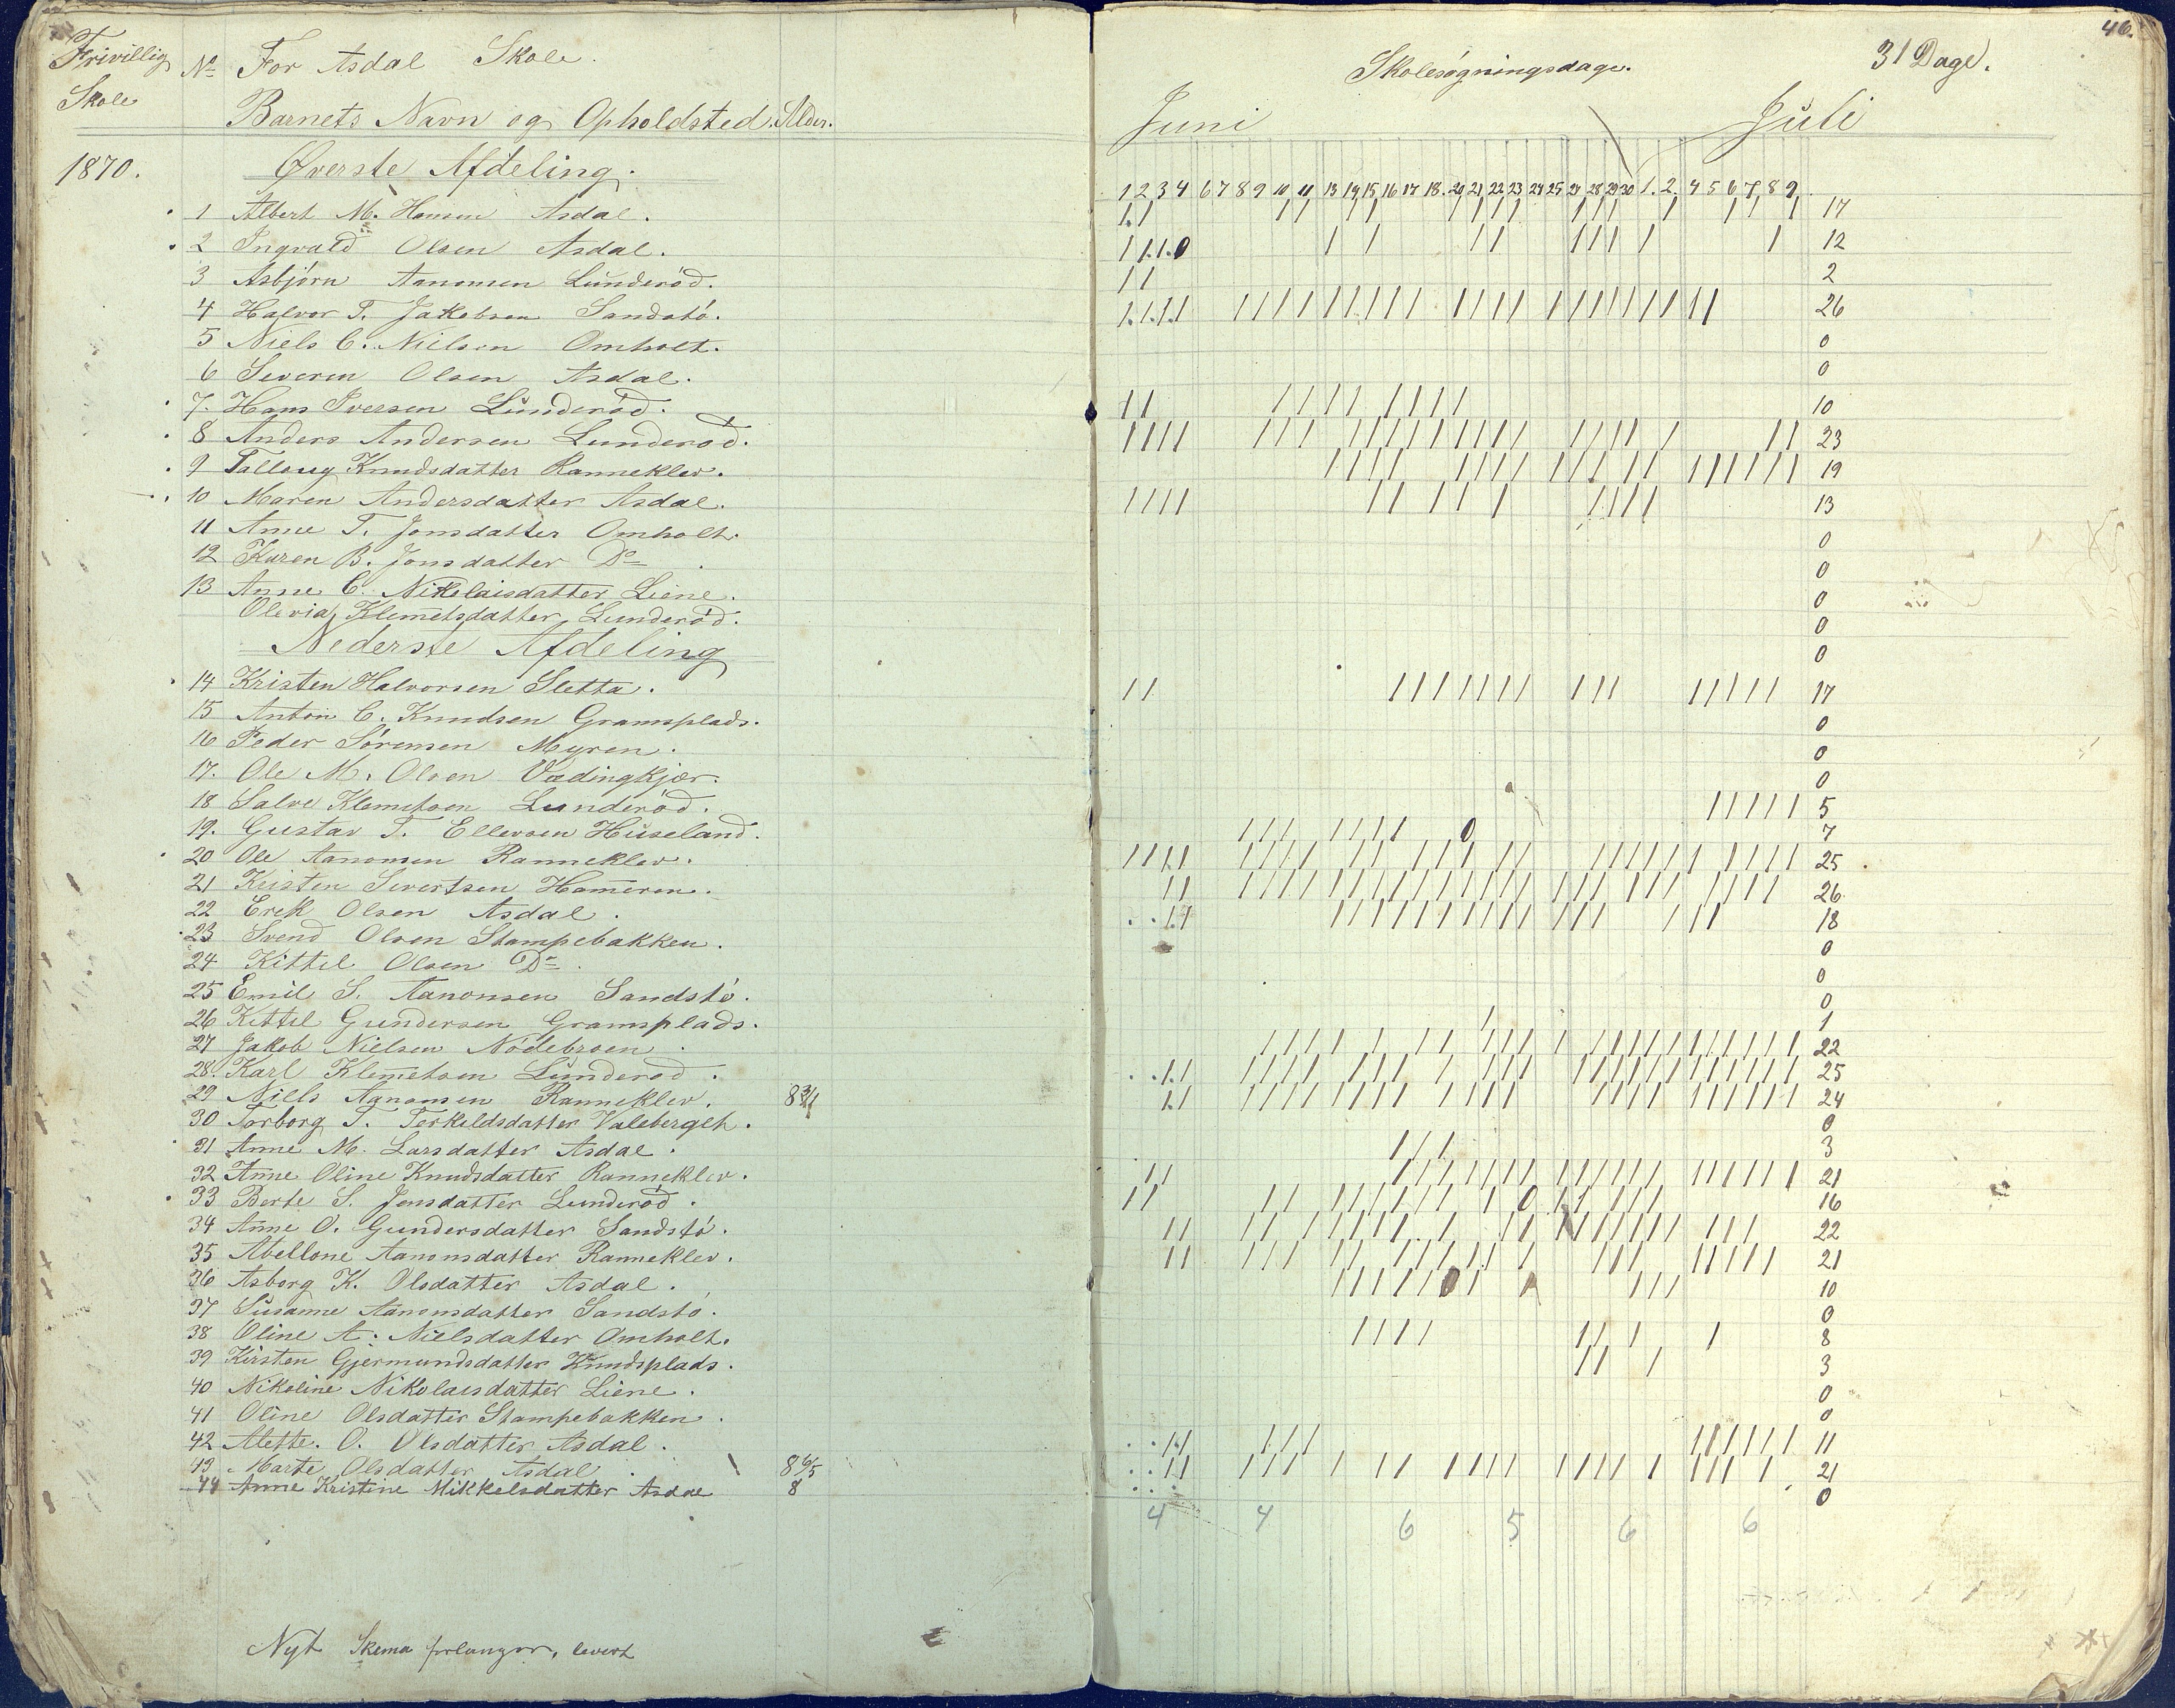 Frivillig Skole
1870.
No For Asdal Skole.
Barnets Navn og Opholdsted. Alder.
Øverste Afdeling.
1 Albert M. Hansen Asdal.
2 Ingvald Olsen Asdal.
3 Asbjørn Aanonsen Lunderöd.
4 Halvor T. Jakobsen Sandstö.
5 Niels C. Nielsen Omholt.
6 Severin Olsen Asdal.
7. Hans Iversen Lunderöd.
8 Anders Andersen Lunderöd.
9 Tallaug Knudsdatter Ranneklev.
10 Maren Andersdatter Asdal.
11 Anne T. Jonsdatter Omholt.
12 Karen B. Jonsdatter Do
13 Anne C. Nikolaisdatter Liene.
Olevia Klemetsdatter Lunderöd.
Nederste Afdeling
14 Kristen Halvorsen Sletta.
15 Anton C. Knudsen Gramsplads.
16 Peder Sörensen Myren.
17. Ole M. Olsen Vædingkjær.
18 Salve Klemetsen Lunderöd.
19. Gustav T. Ellevsen Huseland.
20 Ole Aanonsen Ranneklev.
21 Kristen Sivertsen Hammeren.
22 Erek Olsen Asdal.
23 Svend Olsen Stampebakken.
24 Kittil Olsen Do
25 Emil S. Aanonsen Sandstö.
26 Kittil Gundersen Gramsplads.
27 Jakob Nielsen Nödebroen
28. Karl Klemetsen Lunderod.
29 Niels Aanonsen Ranneklev.
30 Torborg T. Terkeldsdatter Valebergeh.
31 Anne M. Larsdatter Asdal.
32 Anne Oline Knudsdatter Ranneklev.
33 Berte S. Jonsdatter Lunderöd.
34 Anne O. Gundersdatter Sandstö.
35 Abellone Aanonsdatter Ranneklev.
36 Asborg K. Olsdatter Asdal.
37 Susanne Aanonsdatter Sandstö.
38 Oline A. Nielsdatter Omholt.
39 Kirsten Gjermundsdatter Knudsplads.
40 Nikoline Nikolaisdatter Liene.
41 Oline Olsdatter Stampebakken.
42 Alette. O. Olsdatter Asdal.
43 Marte Olsdatter Asdal. 8 6/5
44 Anne Kristine Mikkelsdatter Asdal 8
Nyt Skema forlanger, levert
46.
Skolesøgningsdage. 31 Dage.
Juni Juli
1 2 3 4 6 7 8 9 10 11 13 14 15 16 17 18. 20 21 22 23 24 25 27 28 29 30 1. 2. 4 5 6 7 8 9
17
12
2
26
0
0
10
23
19
13
0
0
0
0
0
17
0
0
0
5
7
25
26
18
0
0
0
1
22
25
24
0
3
21
16
22
21
10
0
8
3
0
0
11
21
0
4 4 6 5 6 6